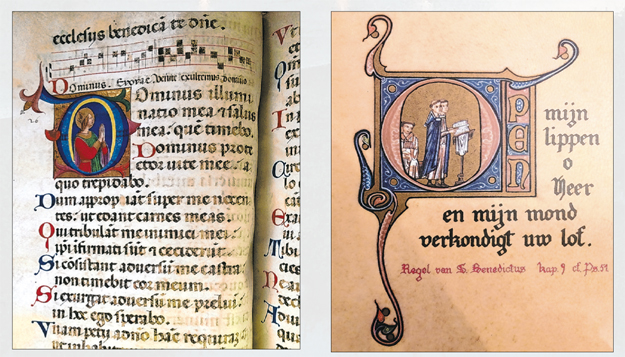 benedicā te dñe.
Dominus.
Dominus illumi
natio mea & salus
mea: quē timebo.
Dominus prote
ctor uite mee: a
quo trepidabo.
Dum appropiāt super me nocen
tes: ut edant carnes meas.
Qui tribulāt me inimici mei:
ip̄i ifirmati sūt & ceciderūt.
Si cōsistant aduersū me castra
non timebit cor meum.
Si exurgat aduersū me preliū:
in hoc ego sperabo.
Unam petii a dño hāc
Open mijn
lippen
o
Heer
en mijn mond
verkondigt uw lof.
Regel van S. Benedictus kap. 9 cf. Ps. 51